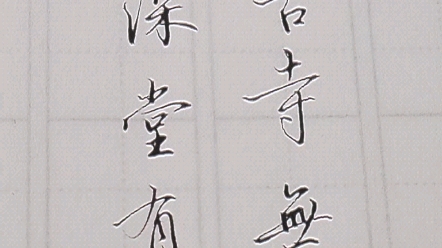 古寺無
深堂有